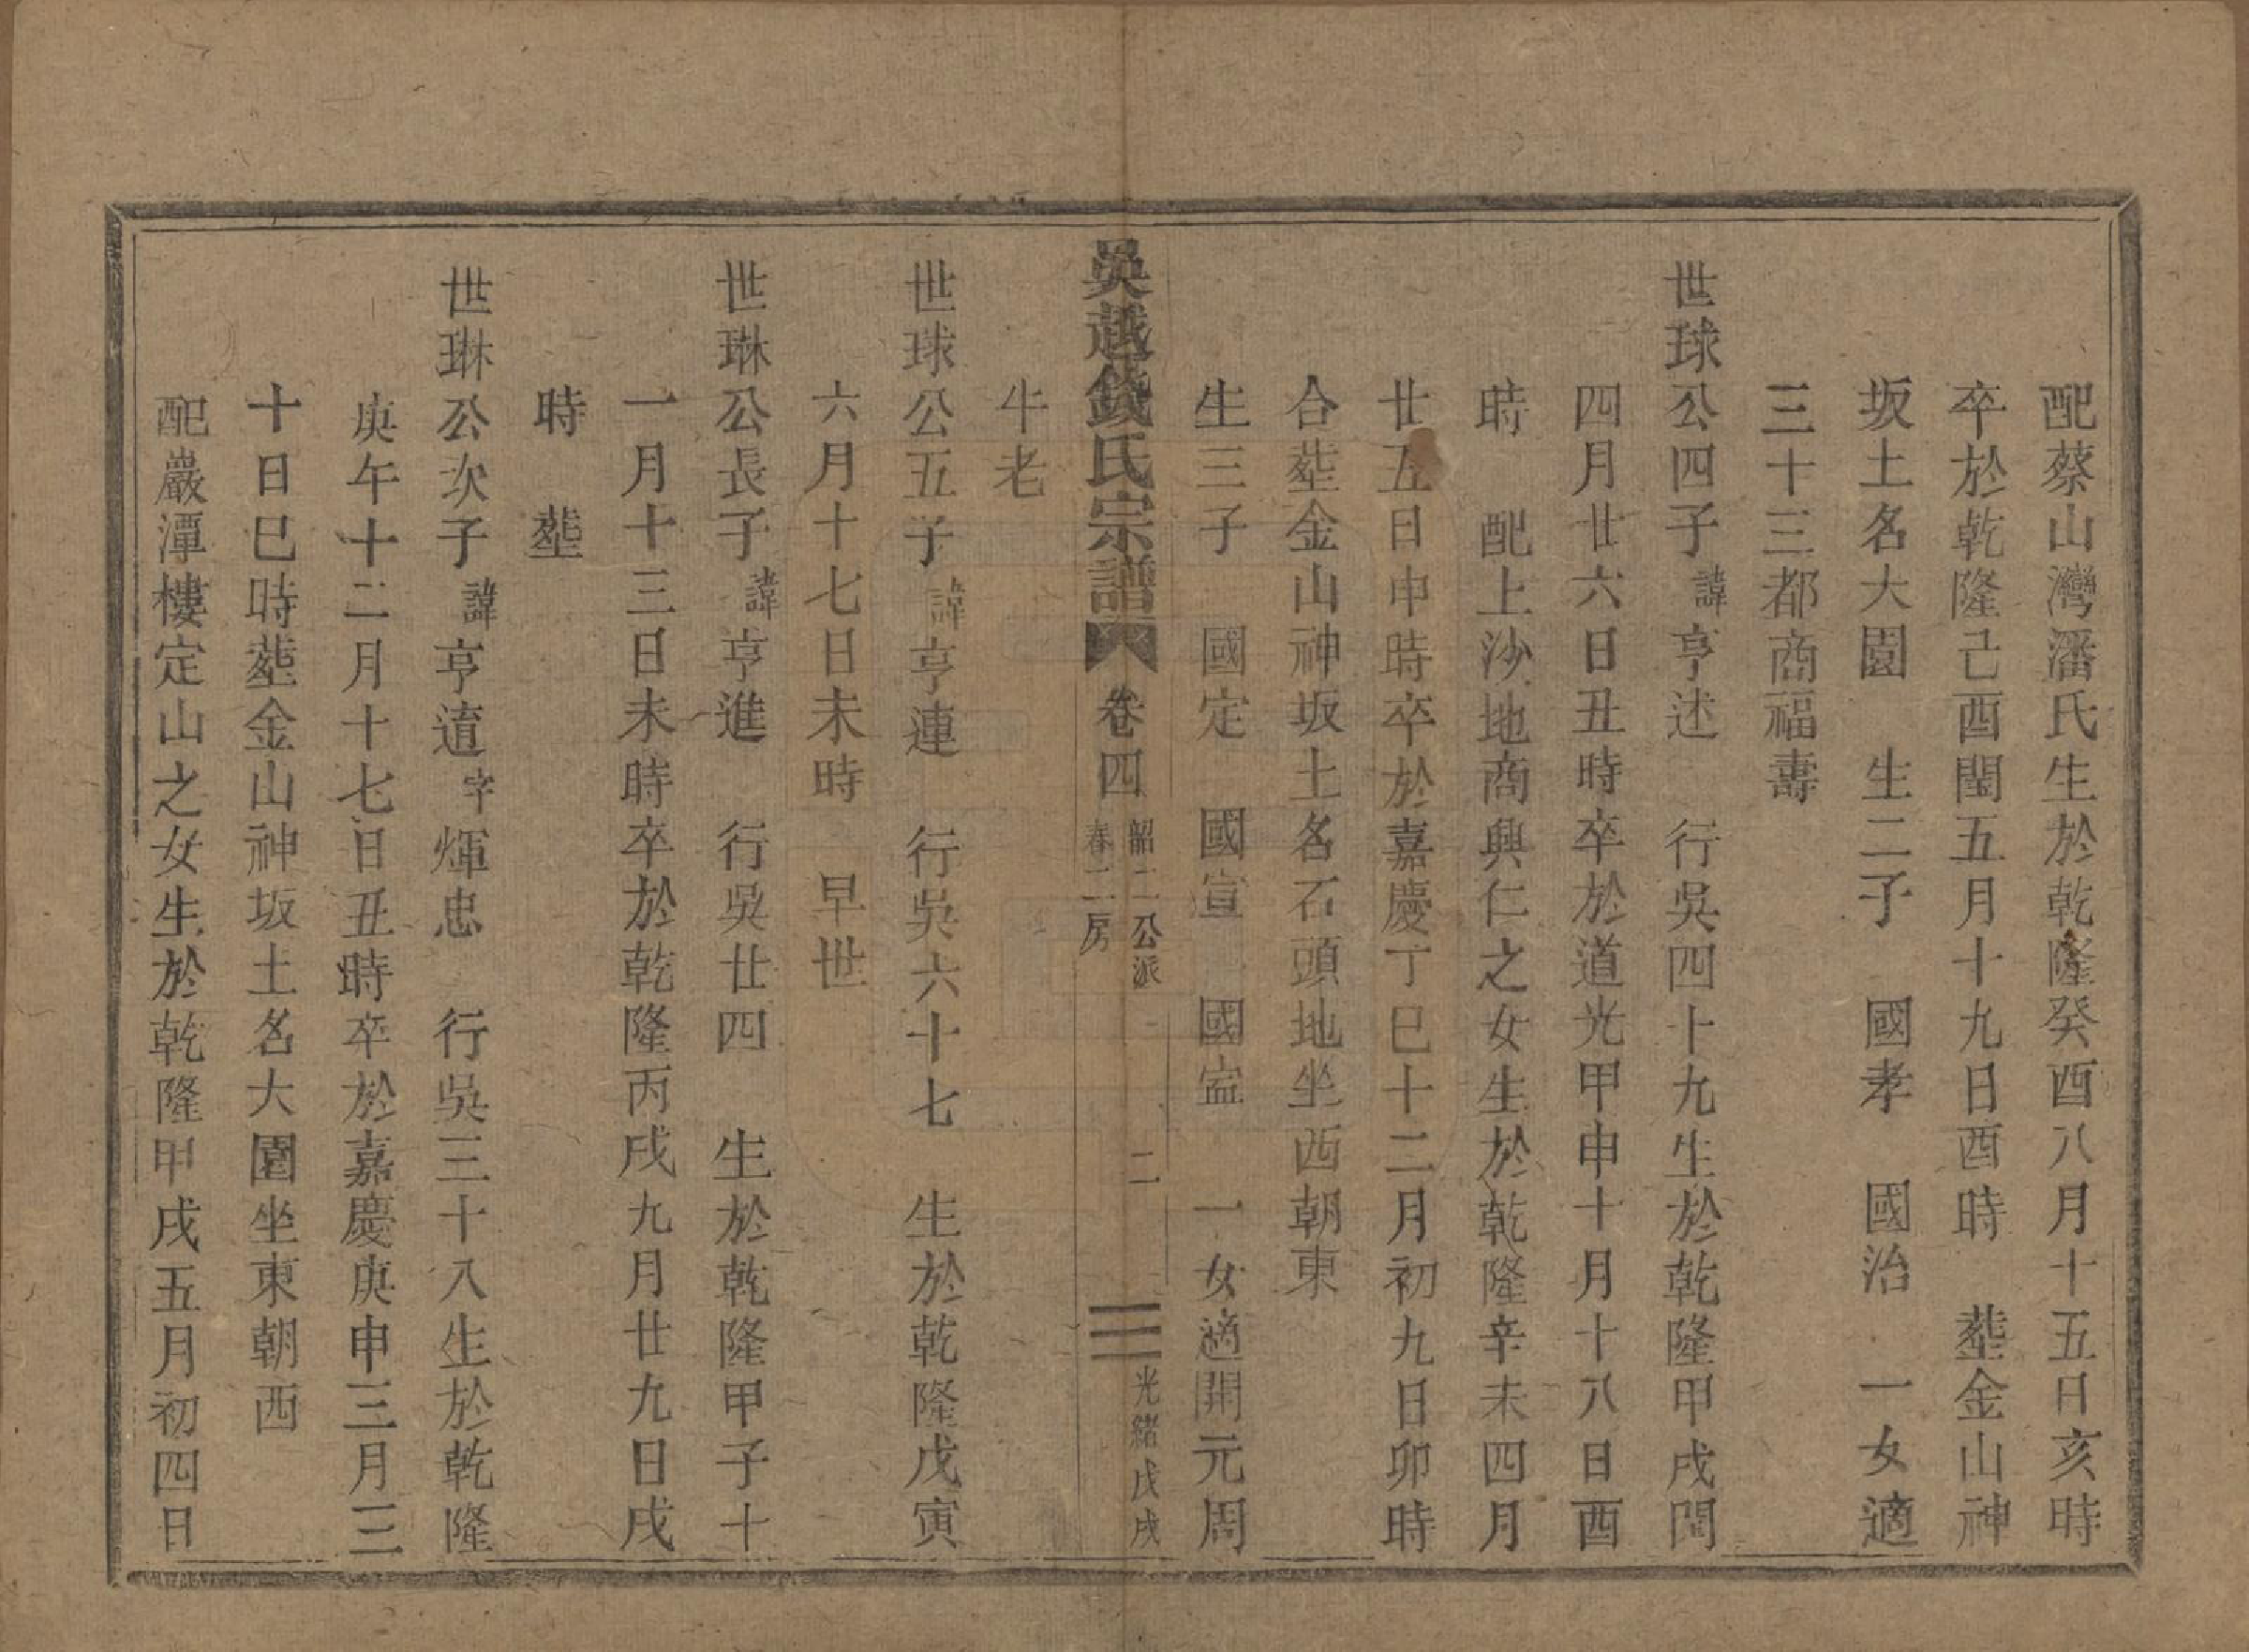 配蔡山灣潘氏生於乾隆癸酉八月十五日亥時
卒於乾隆己酉閏五月十九日酉時　塟金山神
坂土名大園　生二子　國孝　國治　一女適
三十三都商福壽
世球公四子諱亨述　行吳四十九生於乾隆甲戌閏
四月廿六日丑時卒於道光甲申十月十八日酉
時　配上沙地商興仁之女生於乾隆辛未四月
廿五日申時卒於嘉慶丁巳十二月初九日卯時
合塟金山神坂土名石頭地坐西朝東
生三子　國定　國宣　國寍　一女適開元周
牛老
吳越錢氏宗譜　卷四　韶二公派　春二房　二　光緒戊戌
世球公五子諱亨連　行吳六十七　生於乾隆戊寅
六月十七日未時　早世
世琳公長子諱亨進　行吳廿四　生於乾隆甲子十
一月十三日未時卒於乾隆丙戌九月廿九日戌
時　塟
世琳公次子諱亨道字輝忠　行吳三十八生於乾隆
庚午十二月十七日丑時卒於嘉慶庚申三月三
十日巳時塟金山神坂土名大園坐東朝西
配嚴潭樓定山之女生於乾隆甲戌五月初四日